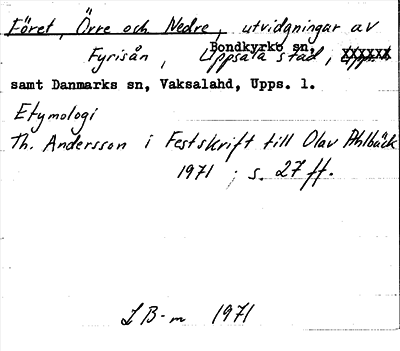 Föret, Örre och Nedre, utvidgningar av
Bondkyrko sn,
Fyrisån, Uppsala stad,
samt Danmarks sn, Vaksalahd, Upps. l.
Etymologi
Th. Andersson i Festskrift till Olav Ahlbäck
1971, s. 27 ff.
B-m 1971